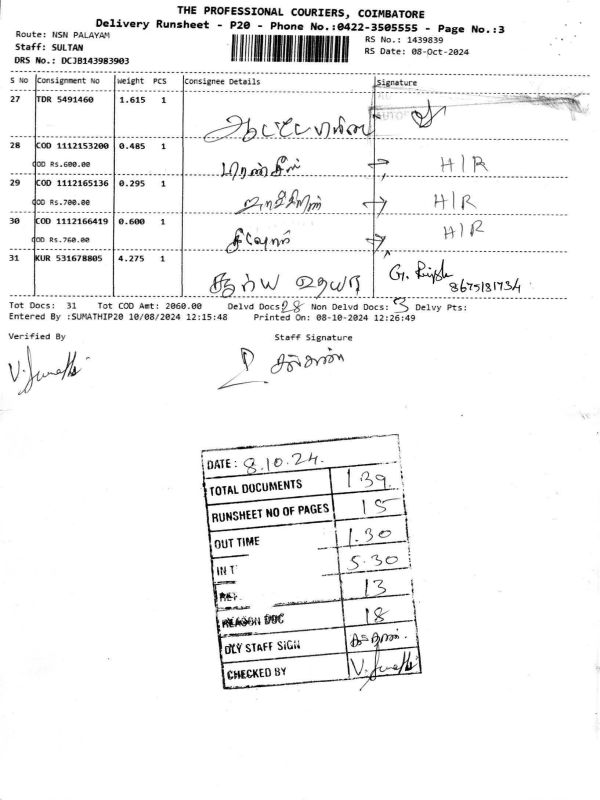 THE PROFESSIONAL COURIERS, COIMBATORE
Delivery Runsheet - P20 - Phone No.:0422-3505555 - Page No.:3
Route: NSN PALAYAM
RS No.: 1439839
Staff: SULTAN
RS Date: 08-Oct-2024
DRS No.: DCJB143983903
S No Consignment No Weight PCS Consignee Details Signature
27 TDR 5491460 1.615 1
28 COD 1112153200 0.485 1
COD Rs.600.00 H/R
29 COD 1112165136 0.295 1
COD Rs.700.00 H/R
30 COD 1112166419 0.600 1 H/R
COD Rs.760.00
31 KUR 531678805 4.275 1
8675181734
Tot Docs: 31 Tot COD Amt: 2060.00 Delvd Docs 28 Non Delvd Docs: 3 Delvy Pts:
Entered By :SUMATHIP20 10/08/2024 12:15:48 Printed On: 08-10-2024 12:26:49
Verified By Staff Signature
DATE: 8.10.24.
TOTAL DOCUMENTS 139
RUNSHEET NO OF PAGES 15
OUT TIME 1.30
IN T 5.30
13
REASON DOC 18
DLY STAFF SIGN
CHECKED BY